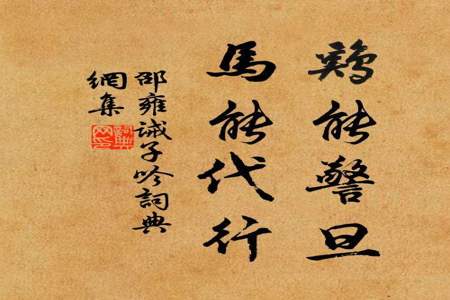 鷄能警旦
馬能代行
邵雍诫子吟詞典
網集